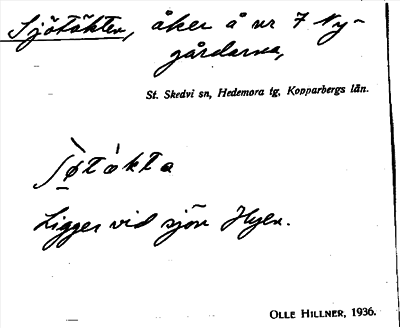 Sjötäkten, åker å nr 7 Ny-
gårdarna,
St. Skedvi sn, Hedemora tg, Kopparbergs län.
Ligger vid sjön Hyen.
OLLE HILLNER, 1936.